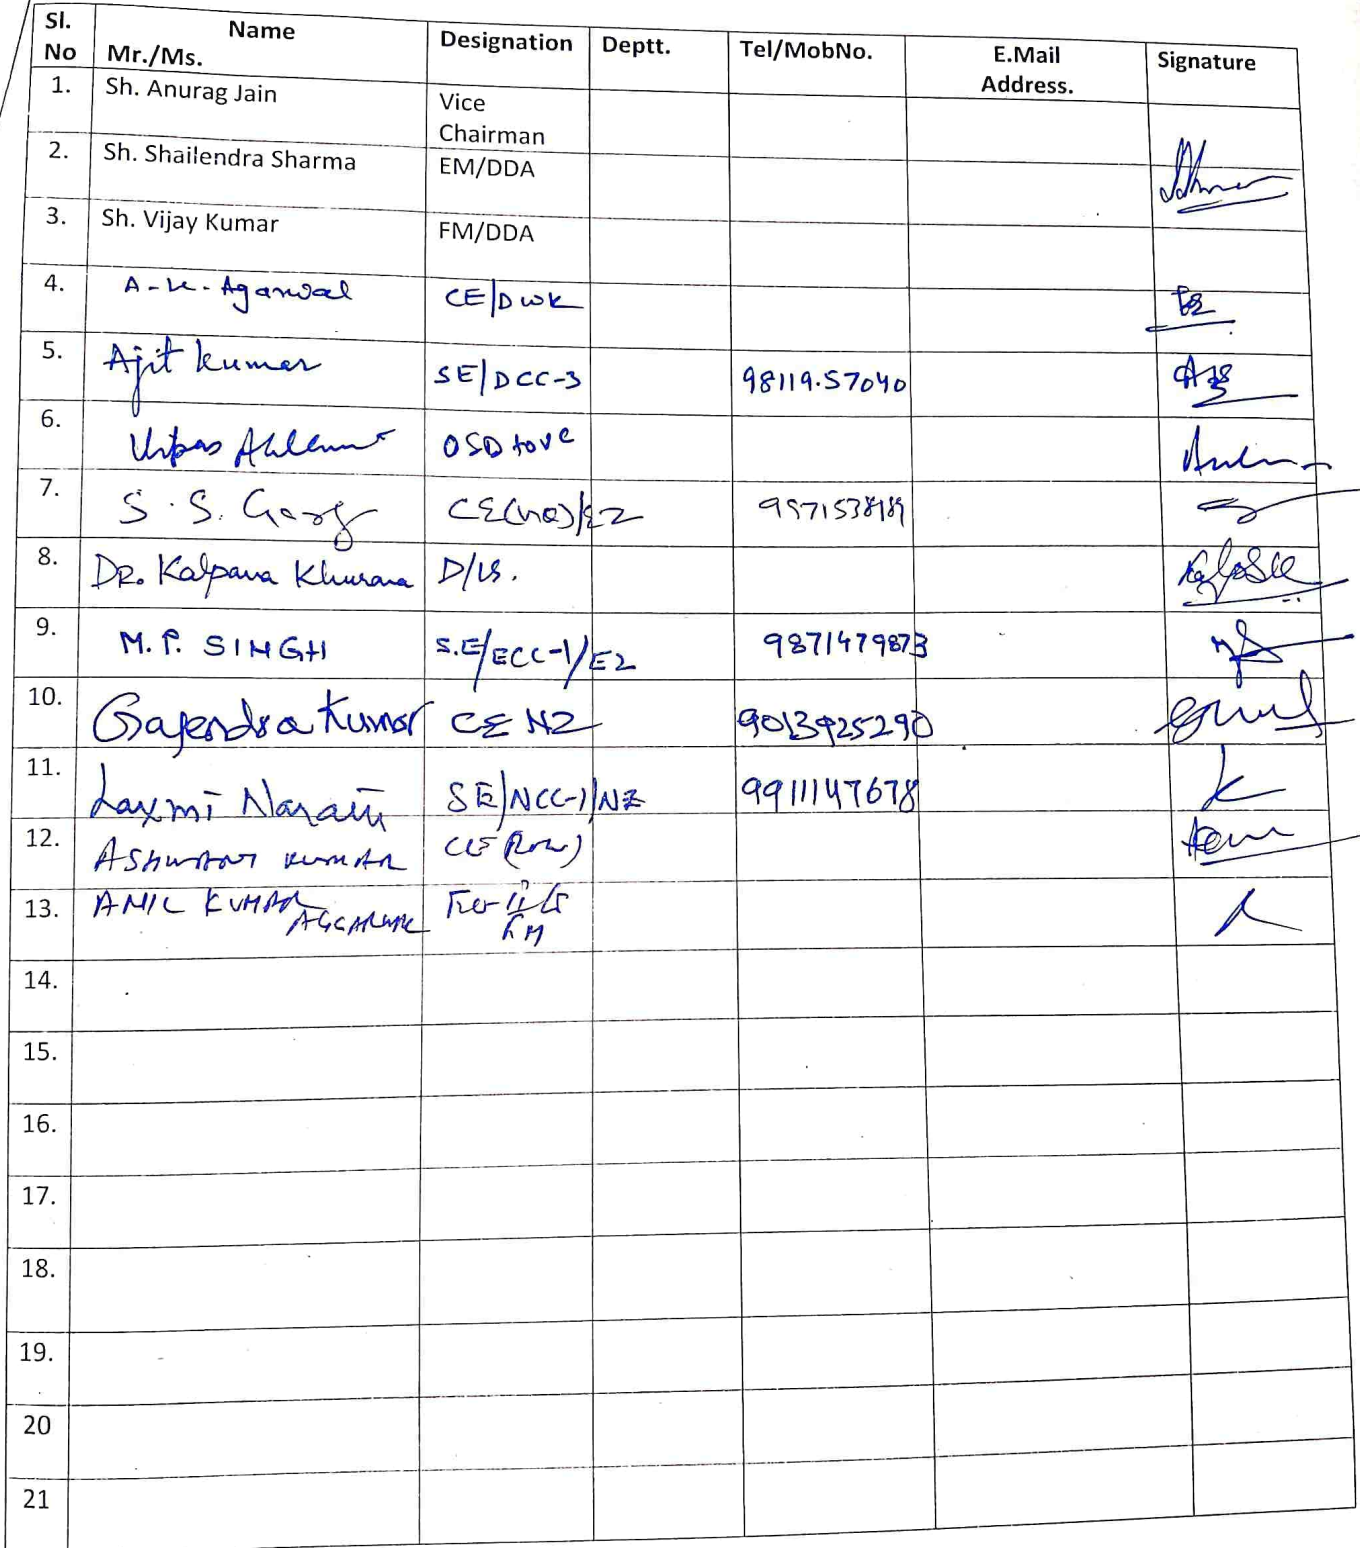 Sl. No Name Mr./Ms. Designation Deptt. Tel/MobNo. E.Mail Address. Signature
1. Sh. Anurag Jain Vice Chairman
2. Sh. Shailendra Sharma EM/DDA
3. Sh. Vijay Kumar FM/DDA
4. A-K-Agarwal CE/DWK
5. Ajit Kumar SE/DCC-3 98119.57040
6. OSD to VC
7. S. S. Garg
8. DR. Kalpana Khurana
9. M.P. SINGH S.E/ECC-1/EZ 9871479873
10. Gajendra Kumar CE NZ 9013925290
11. Laxmi Narain SE/NCC-1/NZ 9911147678
12. ASHWANI KUMAR
13. ANIL KUMAR AGGARWAL
14.
15.
16.
17.
18.
19.
20
21